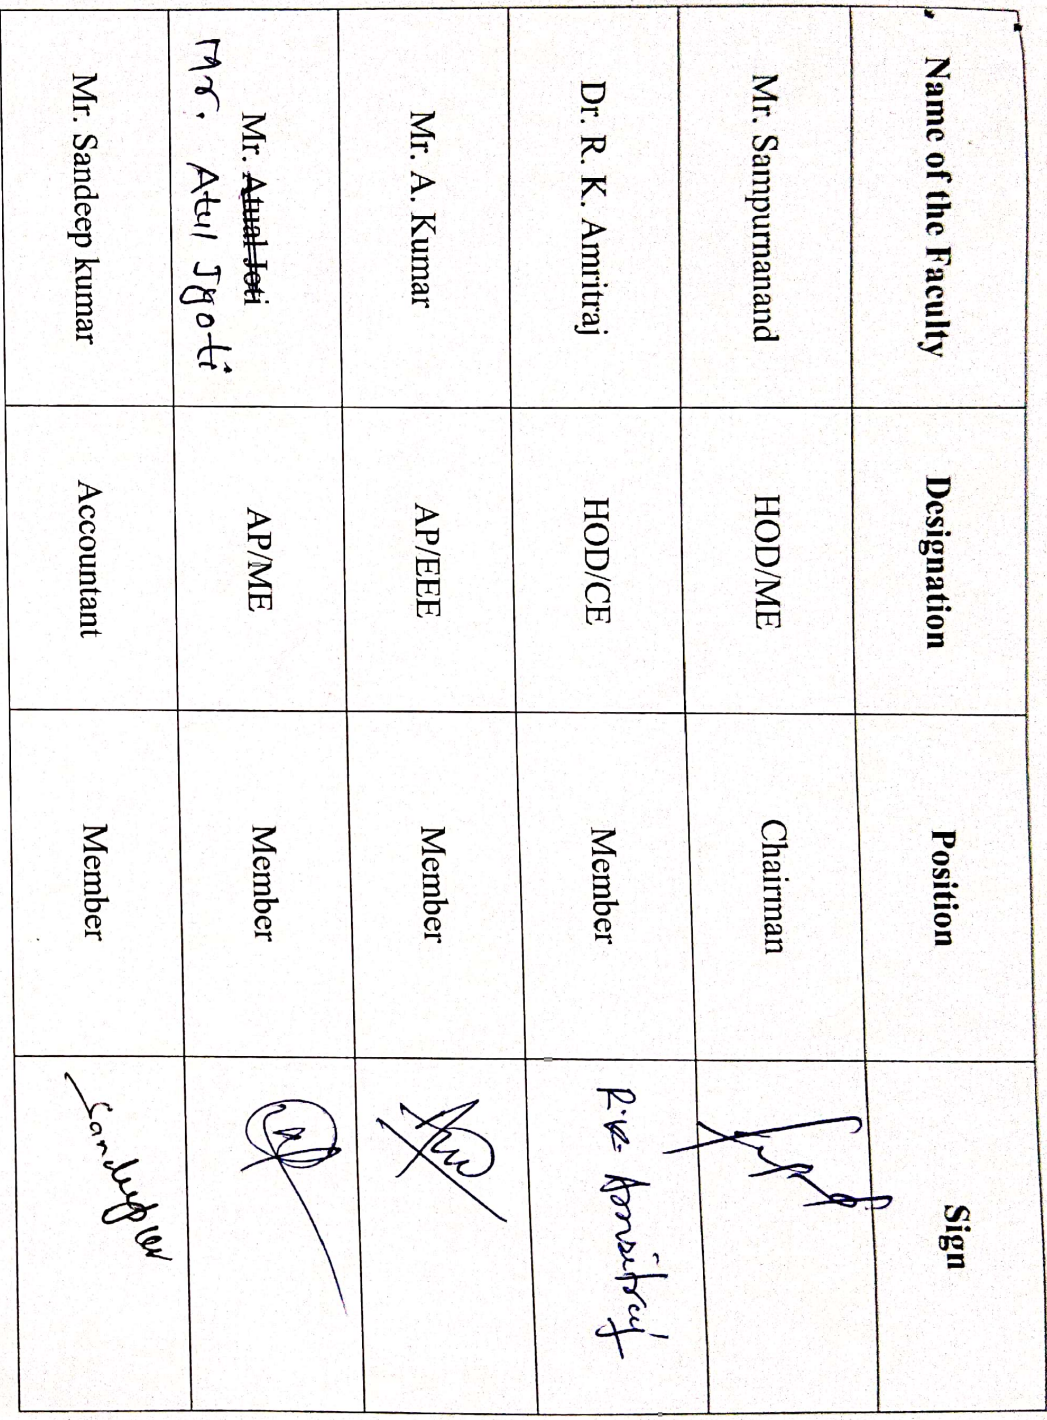 Name of the Faculty Designation Position Sign
Mr. Sampurnanand HOD/ME Chairman
Dr. R. K. Amritraj HOD/CE Member R.K. Amritraj
Mr. A. Kumar AP/EEE Member
Mr. Atual Joti AP/ME Member
Mr. Atul Jyoti
Mr. Sandeep kumar Accountant Member Sandeep